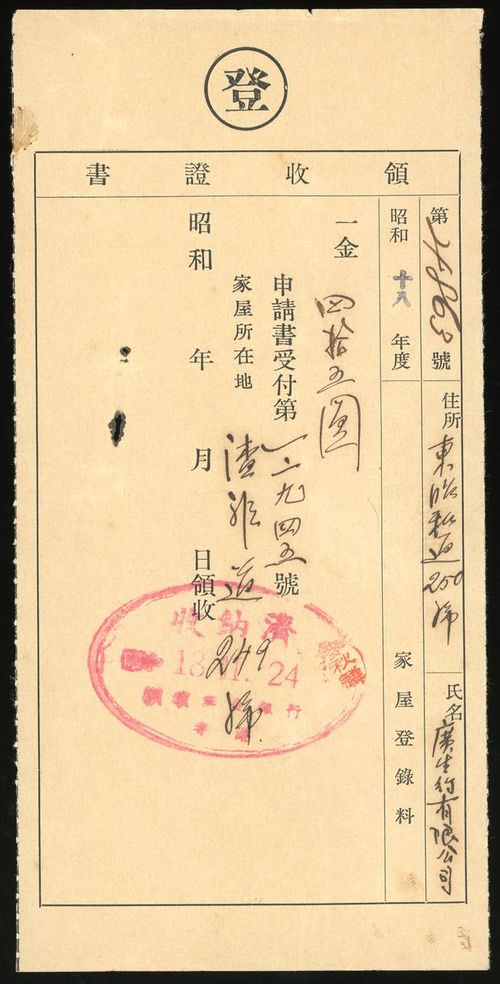 登
領收證書
第 號 住所 東昭和通200號 氏名 廣生行有限公司
昭和十八年度 家屋登錄料
一金 四拾五圓
申請書受付第一二九四五號
家屋所在地 渣菲道 249號
昭和 年 月 日領收
收納濟
24